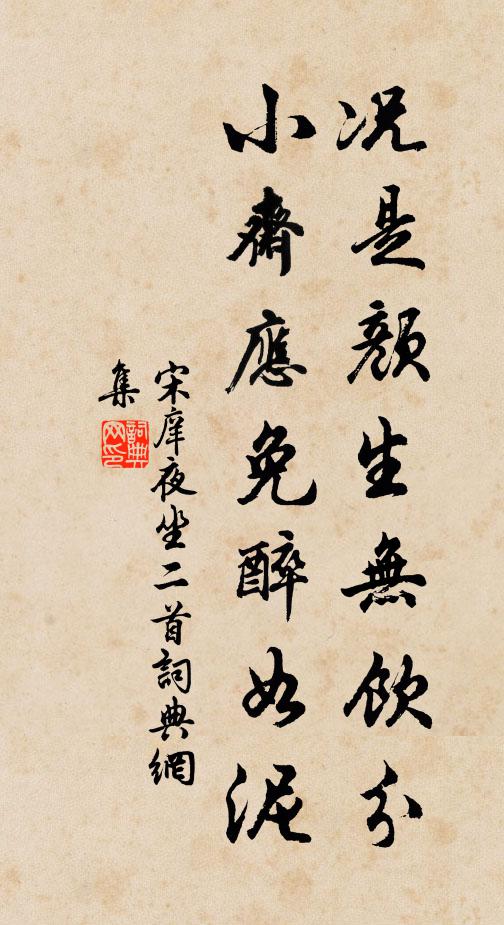 況是顏生無飲分
小齋應免醉如泥
宋庠夜坐二首詞典網
集
詞典
网印